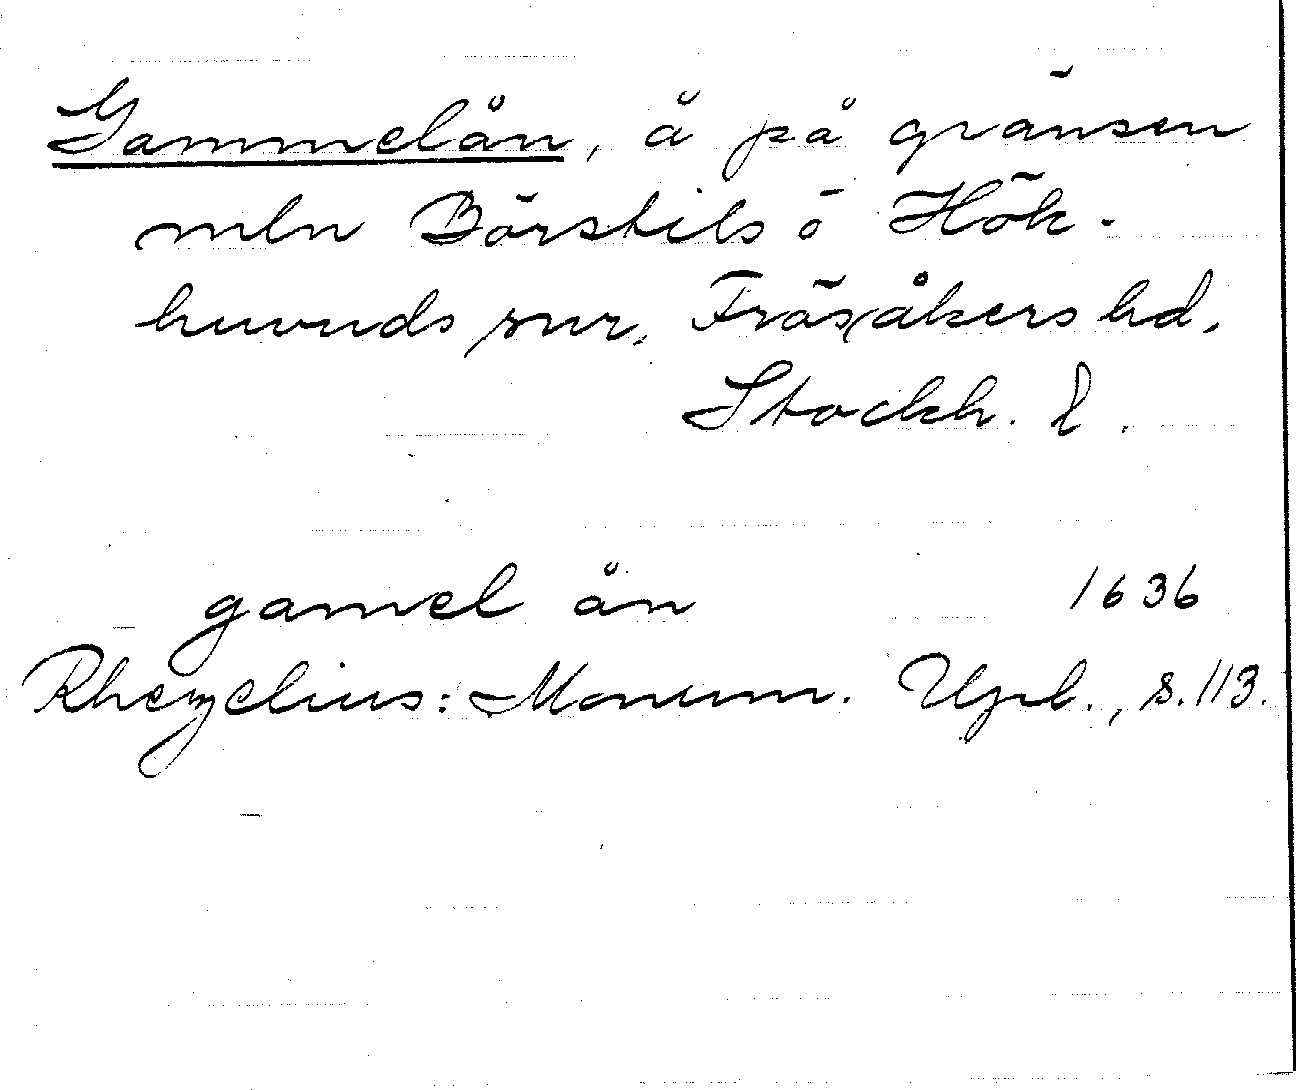 Gammelån, å på gränsen
mln Börstils o Hök-
huvuds snr, Frösåkers hd,
Stockh. l.
gamel ån 1636
Rhezelius: Monum. Upl., s. 113.